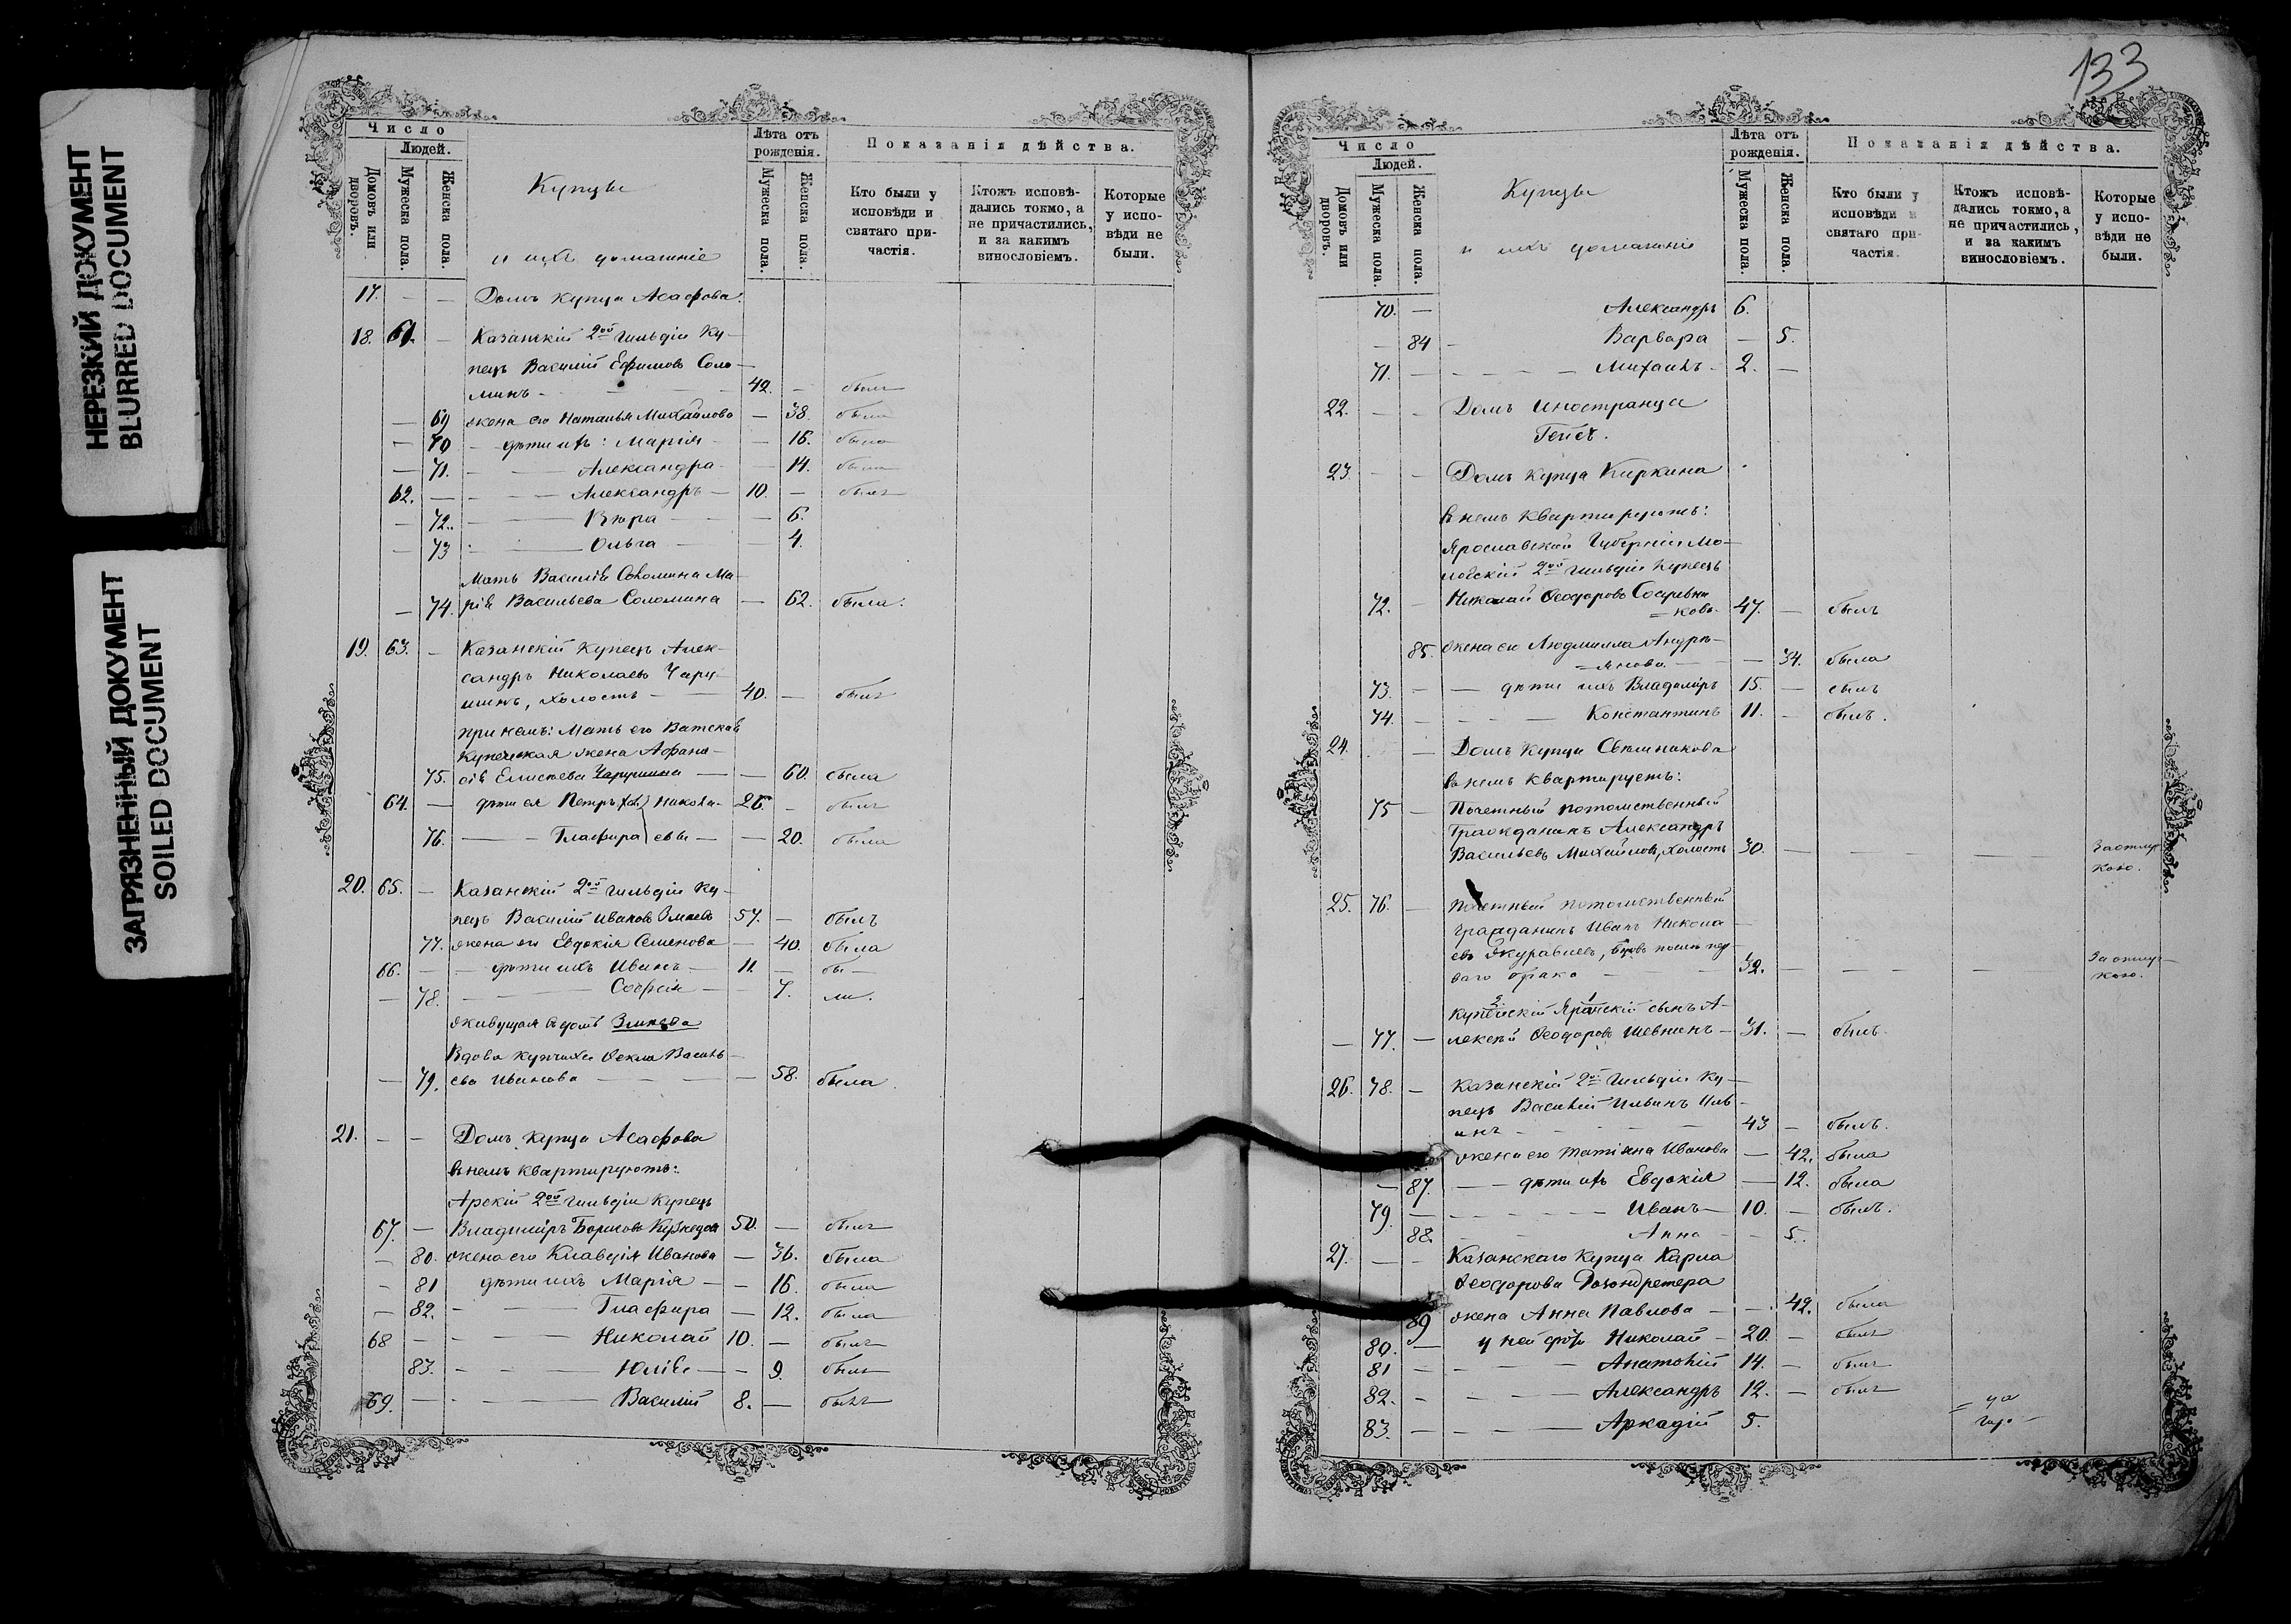 НЕРЕЗКИЙ ДОКУМЕНТ
BLURRED DOCUMENT
ЗАГРЯЗНЕННЫЙ ДОКУМЕНТ
SOILED DOCUMENT
Число
Людей.
Домовъ или дворовъ.
Мужеска пола.
Женска пола.
Купцы
и ихъ домашніе
Лѣта отъ рожденія.
Мужеска пола.
Женска пола.
Показанія дѣйства.
Кто были у исповѣди и святаго причастія.
Ктожъ исповѣдались токмо, а не причастились, и за какимъ винословіемъ.
Которые у исповѣди не были.
17. — — Домъ купца Асафова.
18. 61. — Казанскій 2ой гильдіи Ку—
пецъ Василій Ефимовъ Соло—
минъ — 42. — былъ
— 69 жена его Наталья Михайлова — 38. была
— 70 — дѣти ихъ: Марія — — 16. была
— 71. — Александра — 14. была
62. — — Александръ — 10. — былъ
— 72. — Вѣра — — 6.
— 73 — Ольга — — 4.
Мать Василія Соломина Ма—
— 74. рія Васильева Соломина — 62. была.
19. 63. — Казанскій купецъ Алек—
сандръ Николаевъ Чару—
шинъ, холостъ — 40. — былъ
при немъ: Мать его Вятская
купеческая жена Афана—
75. сія Елисѣева Чарушина — — 60. была
64. — дѣти ея Петръ Никола— 26. — былъ
76. — Глафира евы — — 20. была
20. 65. — Казанскій 2ой гильдіи Ку—
пецъ Василій Ивановъ Змѣевъ 57. — былъ
77. жена его Евдокія Семенова — 40. была
66. — — дѣти ихъ Иванъ — 11. — бы—
— 78. — Софія — — 7. ли.
живущая въ домѣ Змѣева
Вдова купчиха Фекла Василь—
— 79. ева Иванова — — 58. была.
21. — — Домъ купца Асафова
въ немъ квартируютъ:
Арскій 2ой гильдіи купецъ
67. — Владиміръ Борисовъ 50. — былъ
— 80. жена его Клавдія Иванова — 36. была
— 81 дѣти ихъ Марія — — 16. была
— 82. — Глафира — 12. была
68 — — Николай 10. — былъ
83. — Юлія — — 9. была
69. — — Василій 8. — былъ
133
Число
Людей.
Домовъ или дворовъ.
Мужеска пола.
Женска пола.
Купцы
и ихъ домашніе
Лѣта отъ рожденія.
Мужеска пола.
Женска пола.
Показанія дѣйства.
Кто были у исповѣди и святаго причастія.
Ктожъ исповѣдались токмо, а не причастились, и за какимъ винословіемъ.
Которые у исповѣди не были.
70. — Александръ 6.
— 84 — Варвара — 5.
71. — — Михаилъ — 2. —
22. — — Домъ Иностранца
23. — — Домъ купца Киркина
въ немъ квартируютъ:
Ярославской Губерніи Мо—
логскій 2ой гильдіи купецъ
72. — Николай Ѳеодоровъ 47. — былъ
85. жена его Людмилла Андрѣ—
= янова — — 34. была
73. — — дѣти ихъ Владиміръ 15. — былъ
74. — — Константинъ 11. — былъ.
24. — Домъ купца Свѣшникова
въ немъ квартируетъ:
75 — Почетный потомственный
Гражданинъ Александръ
Васильевъ Михайловъ, холостъ 30. — — — За отлуч—
кою.
25. 76. — Почетный потомственный
гражданинъ Иванъ Никола—
евъ Журавлевъ, вдовъ послѣ пер—
ваго брака 32. — — — За отлуч—
кою.
2 1
купеческій Яранскій сынъ А—
— 77. — лексѣй Ѳеодоровъ 31. — былъ
26. 78. — Казанскій 2ой гильдіи Ку—
пецъ Василій Ильинъ Иль—
инъ — 43 — былъ.
жена его Татіана Иванова — 42. была
— 87. — дѣти ихъ Евдокія — 12. была
79. — — Иванъ — 10. — былъ.
88. — Анна — 5.
27. — — Казанскаго купца Карла
Ѳеодорова
89 жена Анна Павлова — — 42. была
80. — у ней дѣти Николай — 20. — былъ
81 — — Анатолій 14. — былъ
82. — — Александръ 12. — былъ
83. — — Аркадій 5.